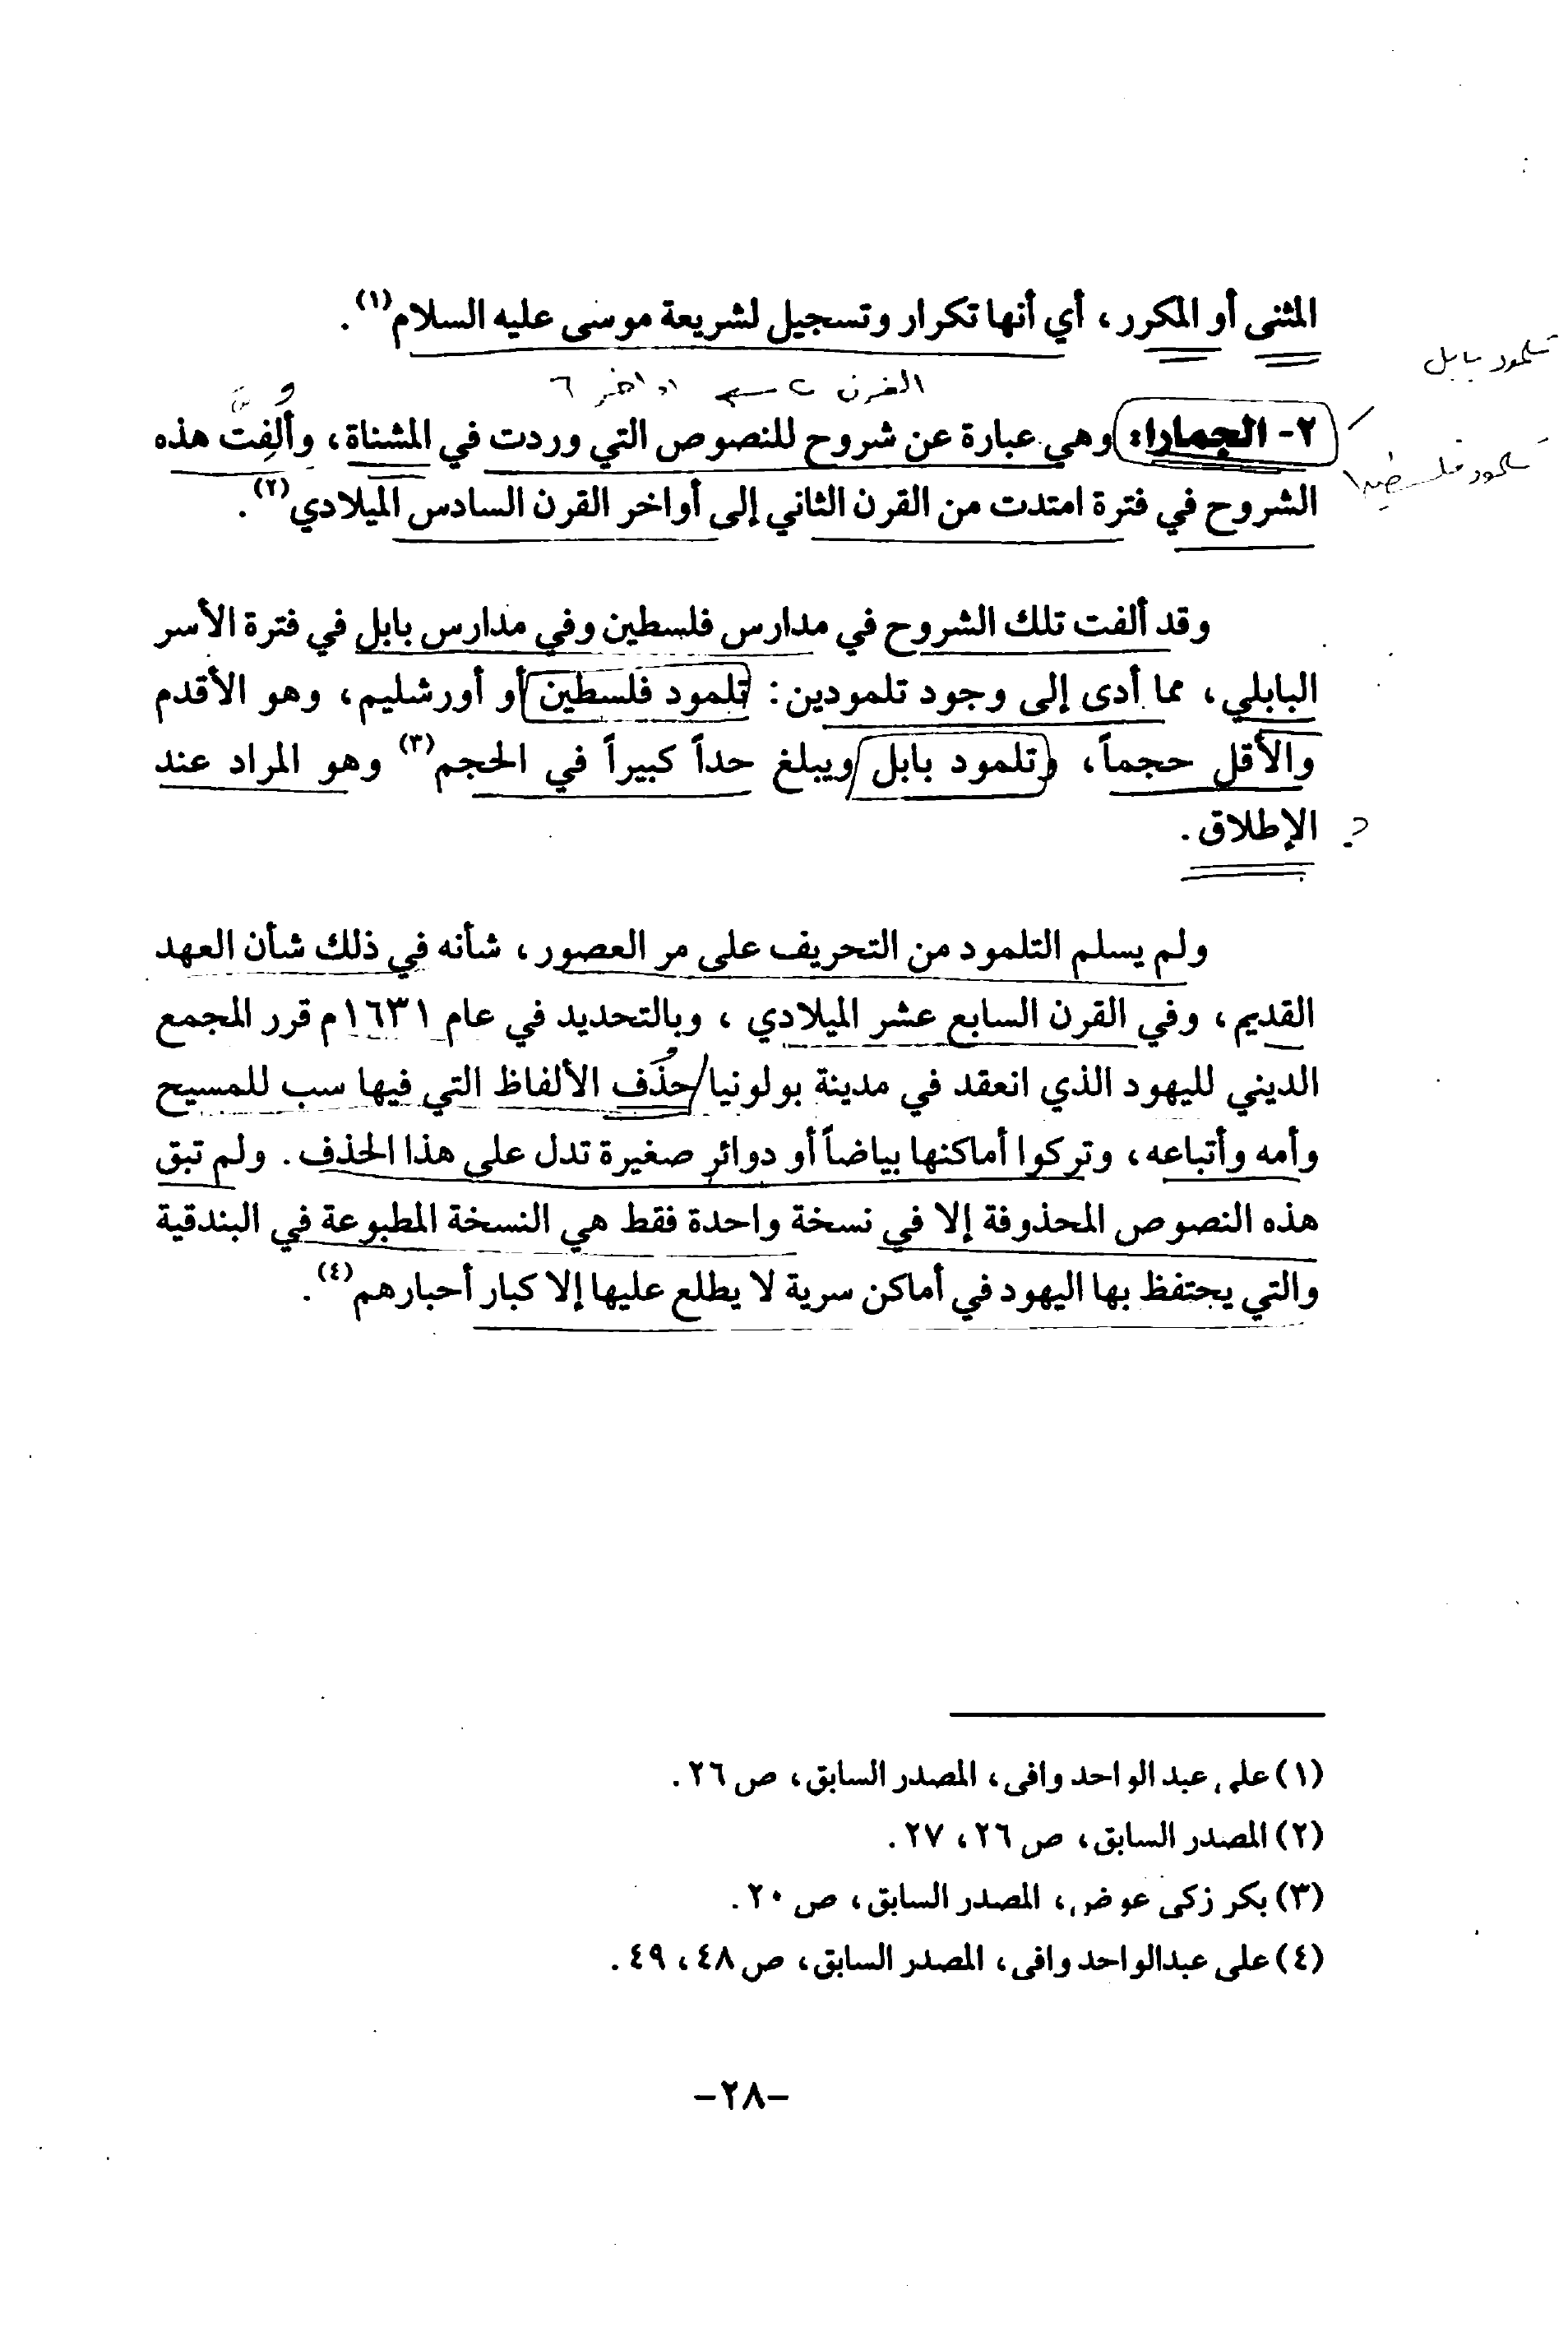 المثنى أو المكرر، أي أنها تكرار وتسجيل لشريعة موسى عليه السلام(١).
تلمود بابل
القرن ٢ ← اواخر ٦
٢- الجمارا: وهي عبارة عن شروح للنصوص التي وردت في المشناة، وأُلِفتْ هذه
تلمود فلسطين
الشروح في فترة امتدت من القرن الثاني إلى أواخر القرن السادس الميلادي(٢).
وقد ألفت تلك الشروح في مدارس فلسطين وفي مدارس بابل في فترة الأسر
البابلي، مما أدى إلى وجود تلمودين: تلمود فلسطين أو أورشليم، وهو الأقدم
والأقل حجماً، وتلمود بابل ويبلغ حداً كبيراً في الحجم(٣) وهو المراد عند
الإطلاق. ?
ولم يسلم التلمود من التحريف على مر العصور، شأنه في ذلك شأن العهد
القديم، وفي القرن السابع عشر الميلادي، وبالتحديد في عام ١٦٣١م قرر المجمع
الديني لليهود الذي انعقد في مدينة بولونيا حذف الألفاظ التي فيها سب للمسيح
وأمه وأتباعه، وتركوا أماكنها بياضاً أو دوائر صغيرة تدل على هذا الحذف. ولم تبق
هذه النصوص المحذوفة إلا في نسخة واحدة فقط هي النسخة المطبوعة في البندقية
والتي يحتفظ بها اليهود في أماكن سرية لا يطلع عليها إلا كبار أحبارهم(٤).
(١) علي عبد الواحد وافى، المصدر السابق، ص ٢٦.
(٢) المصدر السابق، ص ٢٦، ٢٧.
(٣) بكر زكى عوض، المصدر السابق، ص ٢٠.
(٤) على عبدالواحد وافى، المصدر السابق، ص ٤٨، ٤٩.
-٢٨-